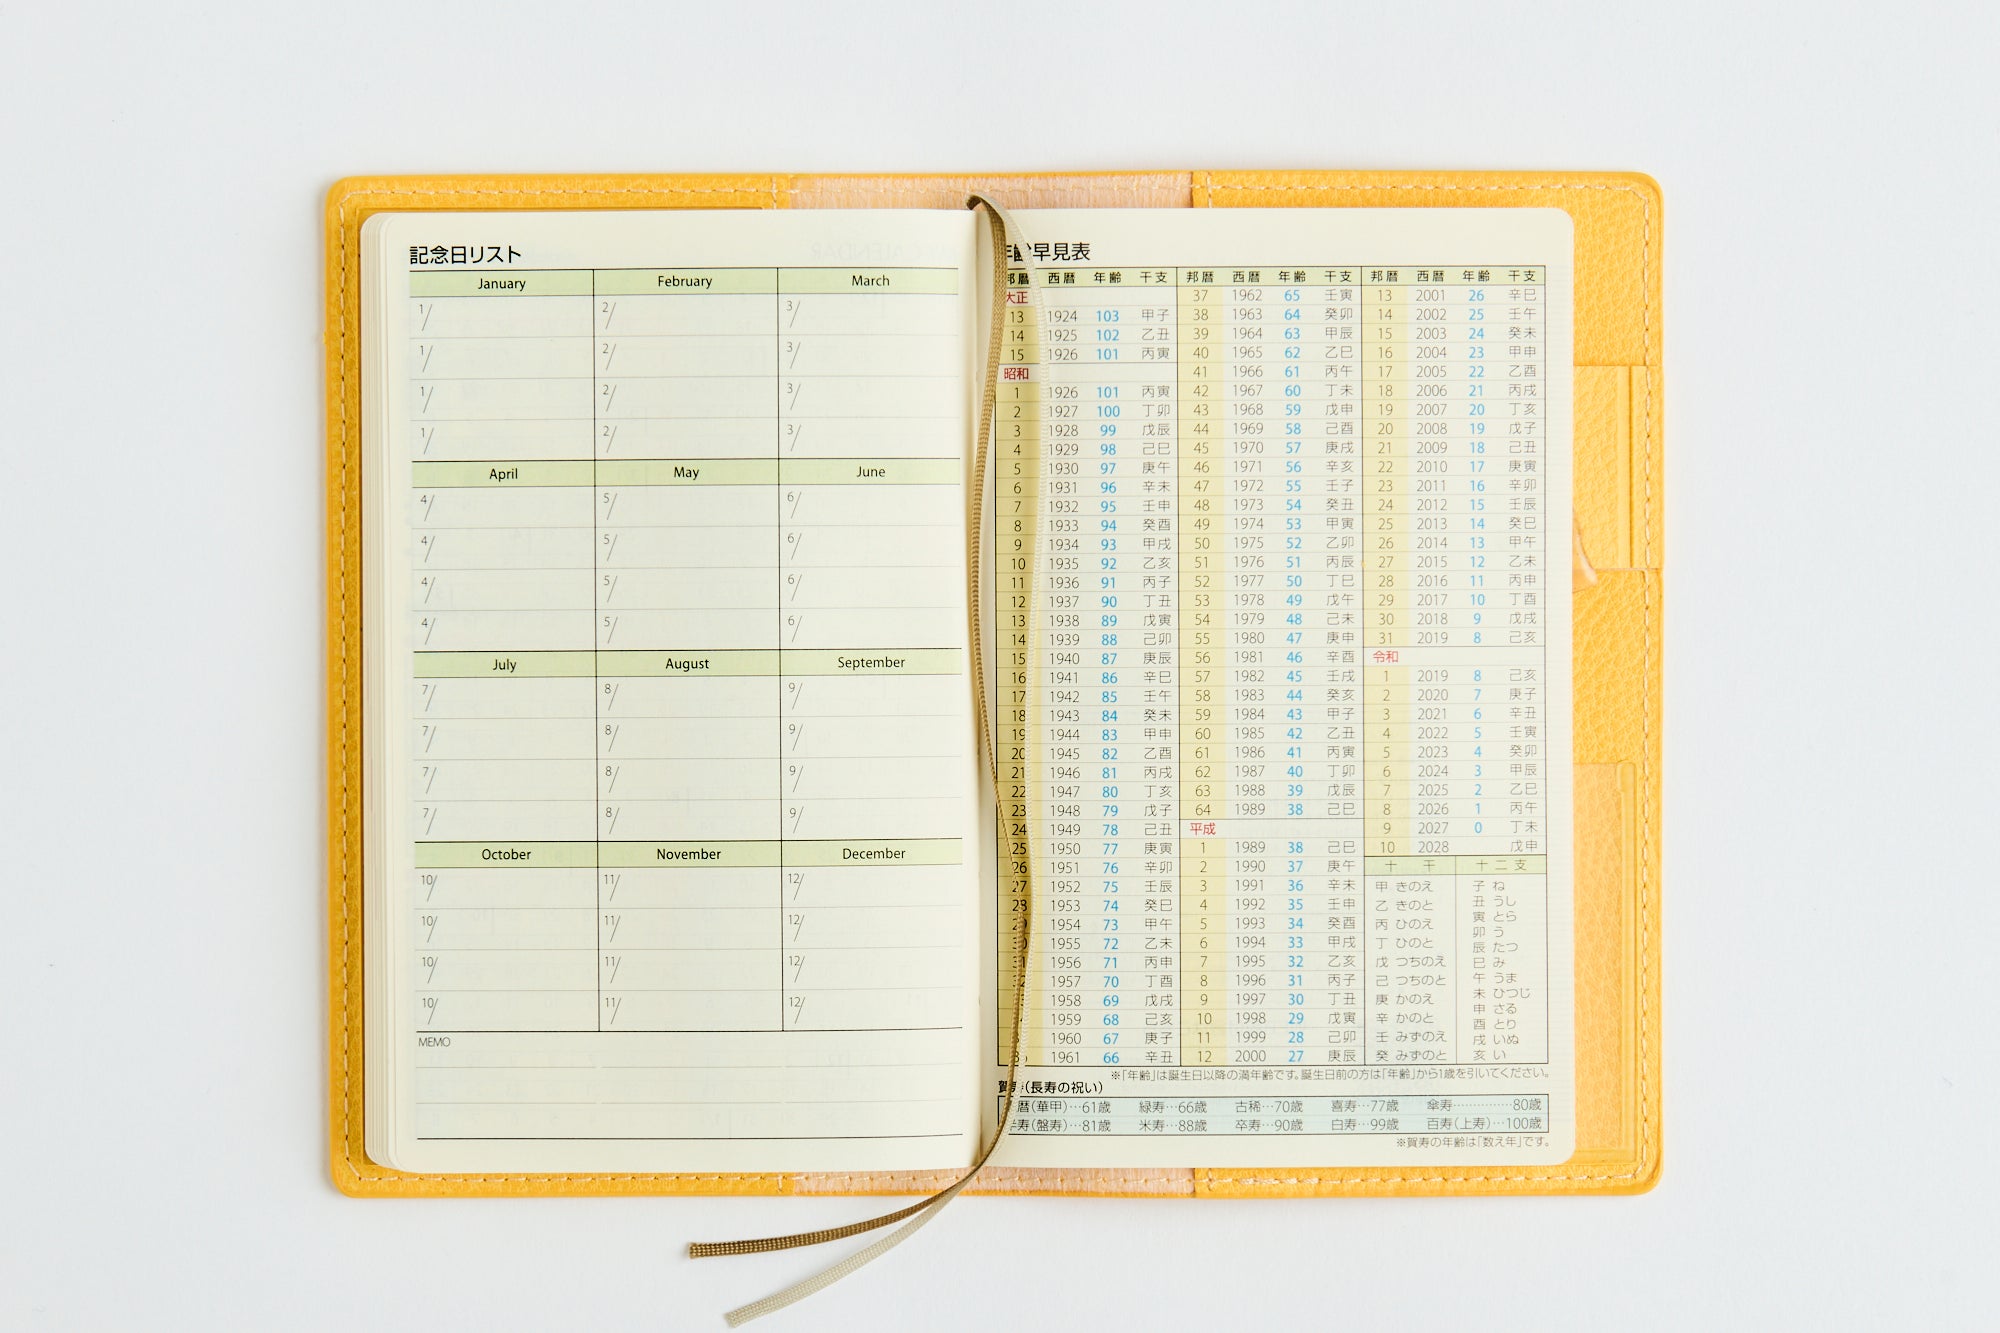 記念日リスト
January February March
1/ 2/ 3/
1/ 2/ 3/
1/ 2/ 3/
1/ 2/ 3/
April May June
4/ 5/ 6/
4/ 5/ 6/
4/ 5/ 6/
4/ 5/ 6/
July August September
7/ 8/ 9/
7/ 8/ 9/
7/ 8/ 9/
7/ 8/ 9/
October November December
10/ 11/ 12/
10/ 11/ 12/
10/ 11/ 12/
10/ 11/ 12/
MEMO
年齢早見表
邦暦 西暦 年齢 干支
大正
13 1924 103 甲子
14 1925 102 乙丑
15 1926 101 丙寅
昭和
1 1926 101 丙寅
2 1927 100 丁卯
3 1928 99 戊辰
4 1929 98 己巳
5 1930 97 庚午
6 1931 96 辛未
7 1932 95 壬申
8 1933 94 癸酉
9 1934 93 甲戌
10 1935 92 乙亥
11 1936 91 丙子
12 1937 90 丁丑
13 1938 89 戊寅
14 1939 88 己卯
15 1940 87 庚辰
16 1941 86 辛巳
17 1942 85 壬午
18 1943 84 癸未
19 1944 83 甲申
20 1945 82 乙酉
21 1946 81 丙戌
22 1947 80 丁亥
23 1948 79 戊子
24 1949 78 己丑
25 1950 77 庚寅
26 1951 76 辛卯
27 1952 75 壬辰
28 1953 74 癸巳
29 1954 73 甲午
30 1955 72 乙未
31 1956 71 丙申
1957 70 丁酉
1958 69 戊戌
1959 68 己亥
1960 67 庚子
1961 66 辛丑
邦暦 西暦 年齢 干支
37 1962 65 壬寅
38 1963 64 癸卯
39 1964 63 甲辰
40 1965 62 乙巳
41 1966 61 丙午
42 1967 60 丁未
43 1968 59 戊申
44 1969 58 己酉
45 1970 57 庚戌
46 1971 56 辛亥
47 1972 55 壬子
48 1973 54 癸丑
49 1974 53 甲寅
50 1975 52 乙卯
51 1976 51 丙辰
52 1977 50 丁巳
53 1978 49 戊午
54 1979 48 己未
55 1980 47 庚申
56 1981 46 辛酉
57 1982 45 壬戌
58 1983 44 癸亥
59 1984 43 甲子
60 1985 42 乙丑
61 1986 41 丙寅
62 1987 40 丁卯
63 1988 39 戊辰
64 1989 38 己巳
平成
1 1989 38 己巳
2 1990 37 庚午
3 1991 36 辛未
4 1992 35 壬申
5 1993 34 癸酉
6 1994 33 甲戌
7 1995 32 乙亥
8 1996 31 丙子
9 1997 30 丁丑
10 1998 29 戊寅
11 1999 28 己卯
12 2000 27 庚辰
邦暦 西暦 年齢 干支
13 2001 26 辛巳
14 2002 25 壬午
15 2003 24 癸未
16 2004 23 甲申
17 2005 22 乙酉
18 2006 21 丙戌
19 2007 20 丁亥
20 2008 19 戊子
21 2009 18 己丑
22 2010 17 庚寅
23 2011 16 辛卯
24 2012 15 壬辰
25 2013 14 癸巳
26 2014 13 甲午
27 2015 12 乙未
28 2016 11 丙申
29 2017 10 丁酉
30 2018 9 戊戌
31 2019 8 己亥
令和
1 2019 8 己亥
2 2020 7 庚子
3 2021 6 辛丑
4 2022 5 壬寅
5 2023 4 癸卯
6 2024 3 甲辰
7 2025 2 乙巳
8 2026 1 丙午
9 2027 0 丁未
10 2028 戊申
十干
甲 きのえ
乙 きのと
丙 ひのえ
丁 ひのと
戊 つちのえ
己 つちのと
庚 かのえ
辛 かのと
壬 みずのえ
癸 みずのと
十二支
子 ね
丑 うし
寅 とら
卯 う
辰 たつ
巳 み
午 うま
未 ひつじ
申 さる
酉 とり
戌 いぬ
亥 い
※「年齢」は誕生日以降の満年齢です。誕生日前の方は「年齢」から1歳を引いてください。
賀寿(長寿の祝い)
暦(華甲)…61歳 緑寿…66歳 古稀…70歳 喜寿…77歳 傘寿…………80歳
寿(盤寿)…81歳 米寿…88歳 卒寿…90歳 白寿…99歳 百寿(上寿)…100歳
※賀寿の年齢は「数え年」です。